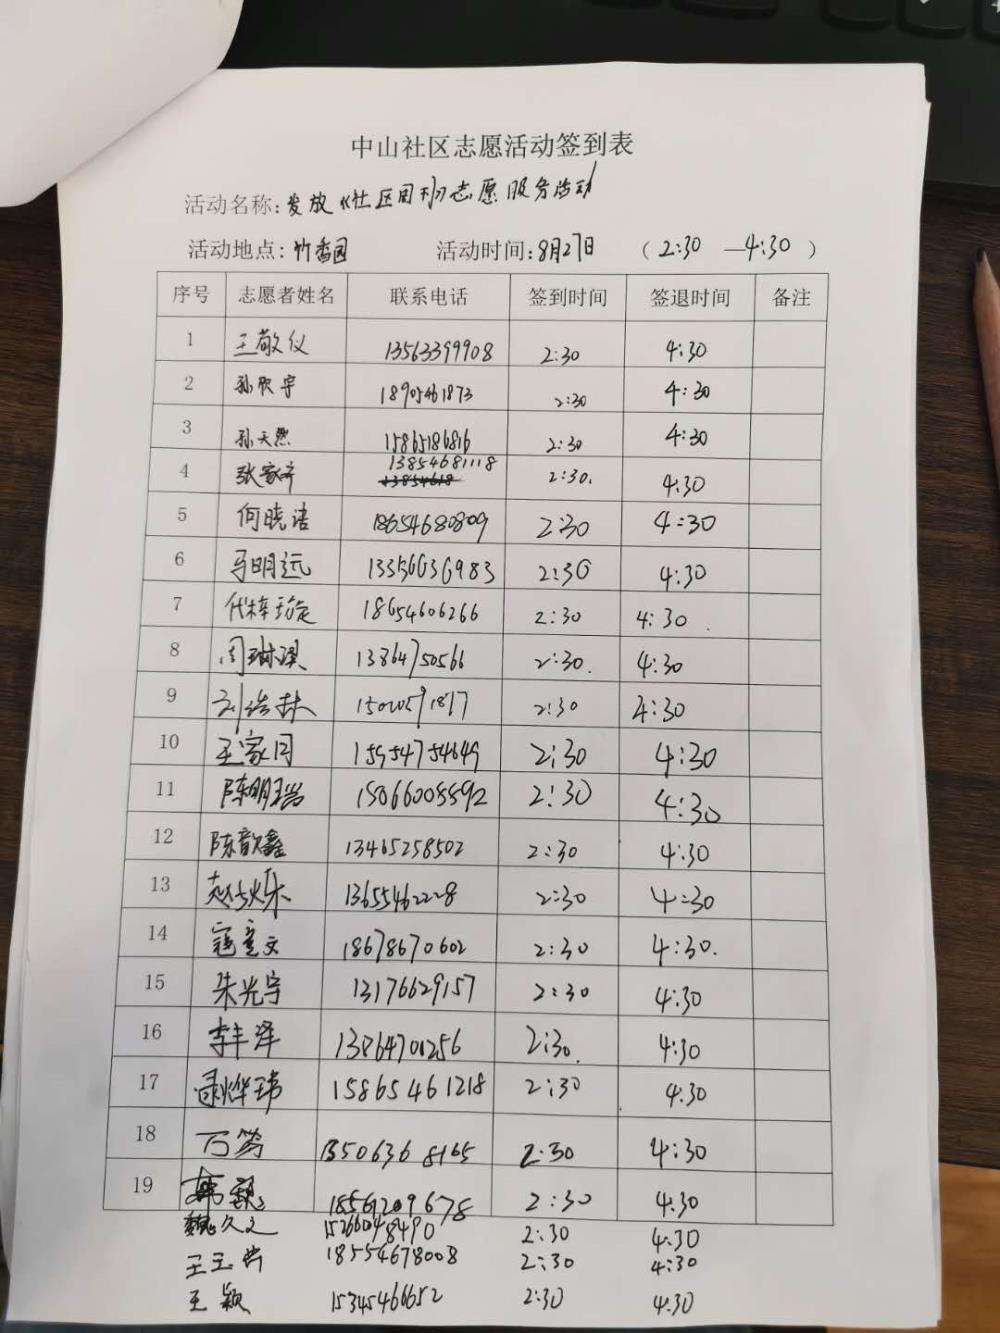 中山社区志愿活动签到表
活动名称:发放《社区周刊》志愿服务活动
活动地点:竹香园 活动时间:8月27日 (2:30 —4:30)
序号 志愿者姓名 联系电话 签到时间 签退时间 备注
1 王敬仪 13563399908 2:30 4:30
2 孙欣宇 18905461873 2:30 4:30
3 孙天然 15865186816 2:30 4:30
4 张家齐 13854681118 2:30. 4:30
5 何晓语 18654680809 2:30 4:30
6 马明远 13356636983 2:30 4:30
7 代梓 18654606266 2:30 4:30
8 周琳 13864750566 2:30. 4:30
9 刘浩林 2:30 4:30
10 王家同 15954754649 2:30 4:30
11 陈明 15066005592 2:30 4:30
12 陈歆鑫 13465258502 2:30 4:30
13 赵 13655462228 2:30 4:30
14 寇童文 18678670602 2:30 4:30.
15 朱光宇 13176629157 2:30 4:30
16 李丰泽 13864700256 2:30. 4:30
17 烨玮 15865461218 2:30 4:30
18 万笃 13506368165 2:30 4:30
19 18561209678 2:30 4:30
魏久之 15266048490 2:30 4:30
王玉 18554678008 2:30 4:30
王颖 15345466652 2:30 4:30